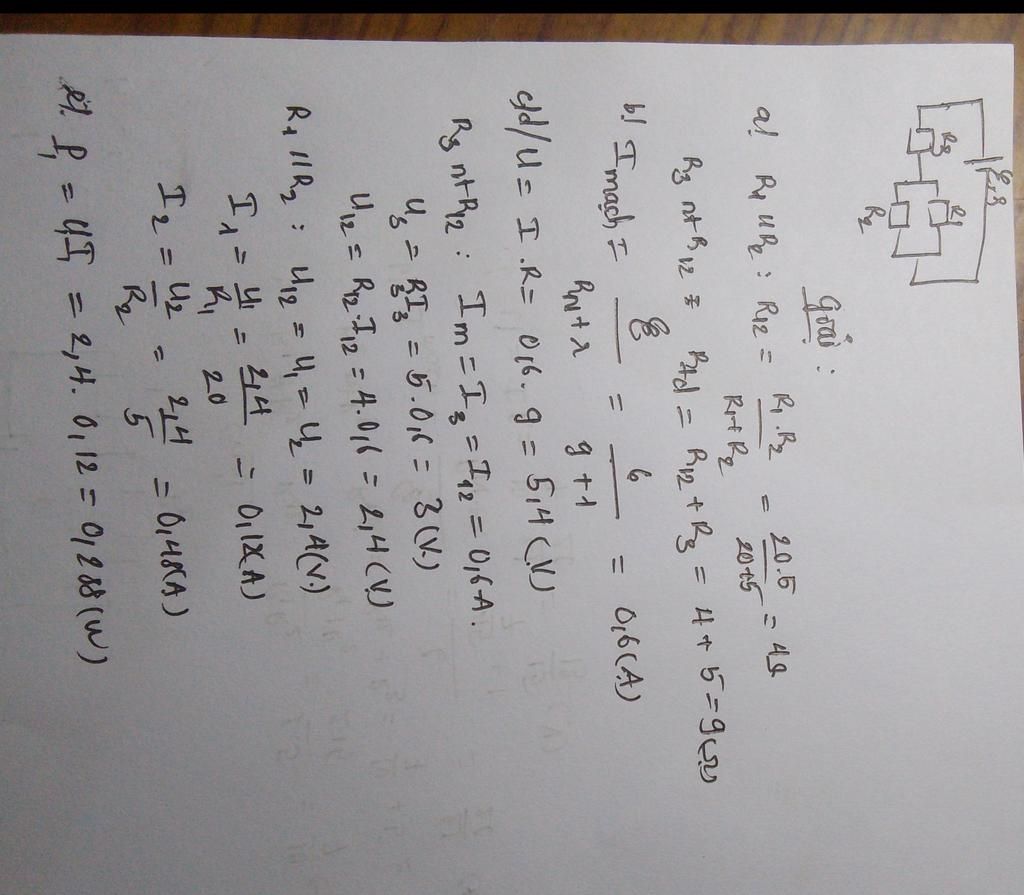 ξ, r
R3
R1
R2
Giải:
a/ R1 // R2 : R12 = R1.R2 / R1+R2 = 20.5 / 20+5 = 4Ω
R3 nt R12 : Rtđ = R12 + R3 = 4 + 5 = 9(Ω)
b/ I mạch = ξ / RN + r = 6 / 9+1 = 0,6(A)
c/d/ U = I.R = 0,6.9 = 5,4(V)
R3 nt R12 : Im = I3 = I12 = 0,6A.
U3 = R3I3 = 5.0,6 = 3(V)
U12 = R12.I12 = 4.0,6 = 2,4(V)
R1 // R2 : U12 = U1 = U2 = 2,4(V)
I1 = U1 / R1 = 2,4 / 20 = 0,12(A)
I2 = U2 / R2 = 2,4 / 5 = 0,48(A)
P1 = U1I1 = 2,4.0,12 = 0,288(W)